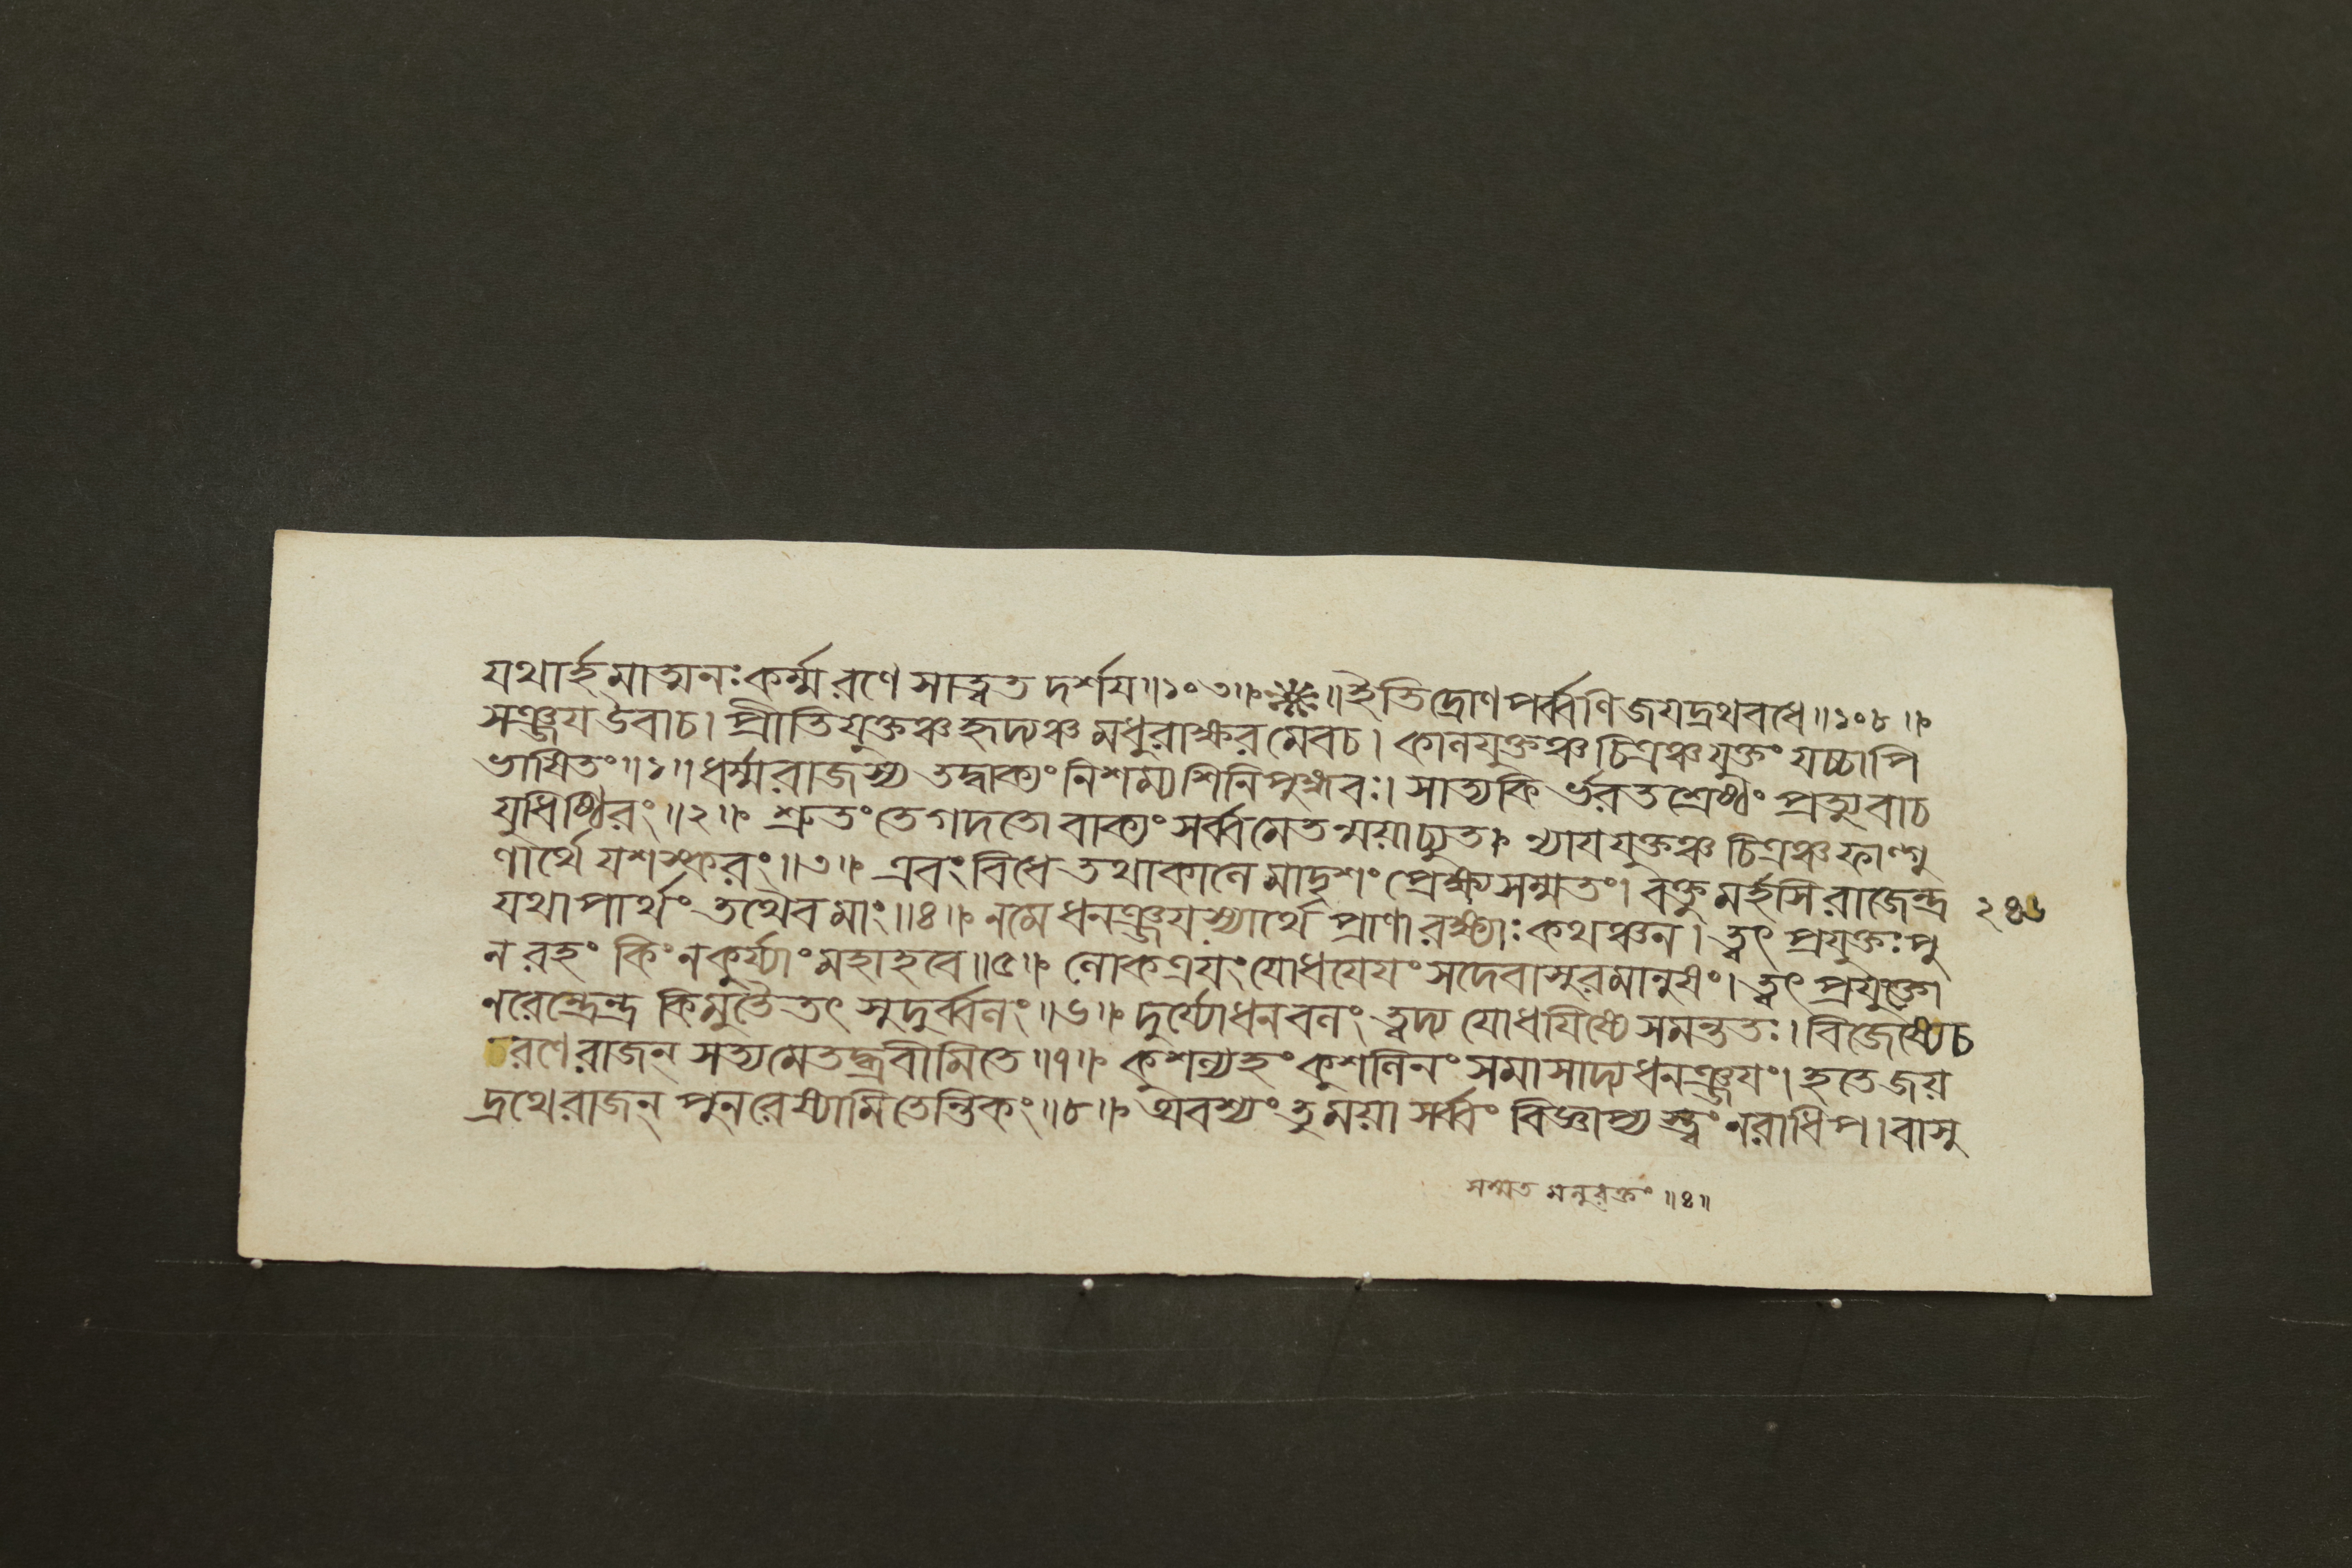 যথার্হমাত্মনঃকর্ম্মরণেসাত্বতদর্শয॥১০৩॥❋॥ইতিদ্রোণপর্ব্বণিজযদ্রথবধে॥১০৮॥
সঞ্জযউবাচ। প্রীতিযুক্তঞ্চহৃদ্যঞ্চমধুরাক্ষরমেবচ। কালযুক্তঞ্চচিত্রঞ্চযুক্তং যচ্চাপি
ভাষিতং॥১॥ধর্ম্মরাজস্য তদ্বাক্যং নিশম্যশিনিপুঙ্গবঃ। সাত্যকি র্ভরতশ্রেষ্ঠং প্রত্যুবাচ
যুধিষ্ঠিরং॥২॥ শ্রুতংতেগদতোবাক্যং সর্ব্বমেতন্ময়াচ্যুত। ন্যাযযুক্তঞ্চ চিত্রঞ্চফাল্গু
ণার্থেযশস্করং॥৩॥ এবংবিধেতথাকালেমাদৃশং প্রেক্ষ্যসম্মতং। বক্তুমর্হসিরাজেন্দ্র
যথাপার্থং তথৈবমাং॥৪॥ নমেধনঞ্জযস্যার্থে প্রাণারক্ষ্যাঃকথঞ্চন। ত্বৎ প্রযুক্তঃপু
নরহং কিংনকুর্য্যাংমহাহবে॥৫॥ লোকত্রযংযোধযেযং সদেবাসুরমানুষং। ত্বৎ প্রযুক্তো
নরেন্দ্রেন্দ্র কিমুতৈতৎ সুদুর্ব্বলং॥৬॥ দুর্য্যোধনবলং ত্বদ্য যোধযিষ্যেসমন্ততঃ। বিজেষ্যেচ
রণেরাজন্ সত্যমেতদ্ব্রবীমিতে॥৭॥ কুশল্যহং কুশলিনংসমাসাদ্যধনঞ্জযং। হতেজয়
দ্রথেরাজন্ পুনরেষ্যামিতেন্তিকং॥৮॥ অবশ্যংতুময়াসর্ব্বং বিজ্ঞাপ্যস্ত্বং নরাধিপ। বাসু
২৪৬
সম্মত মনুরক্তং॥৪॥